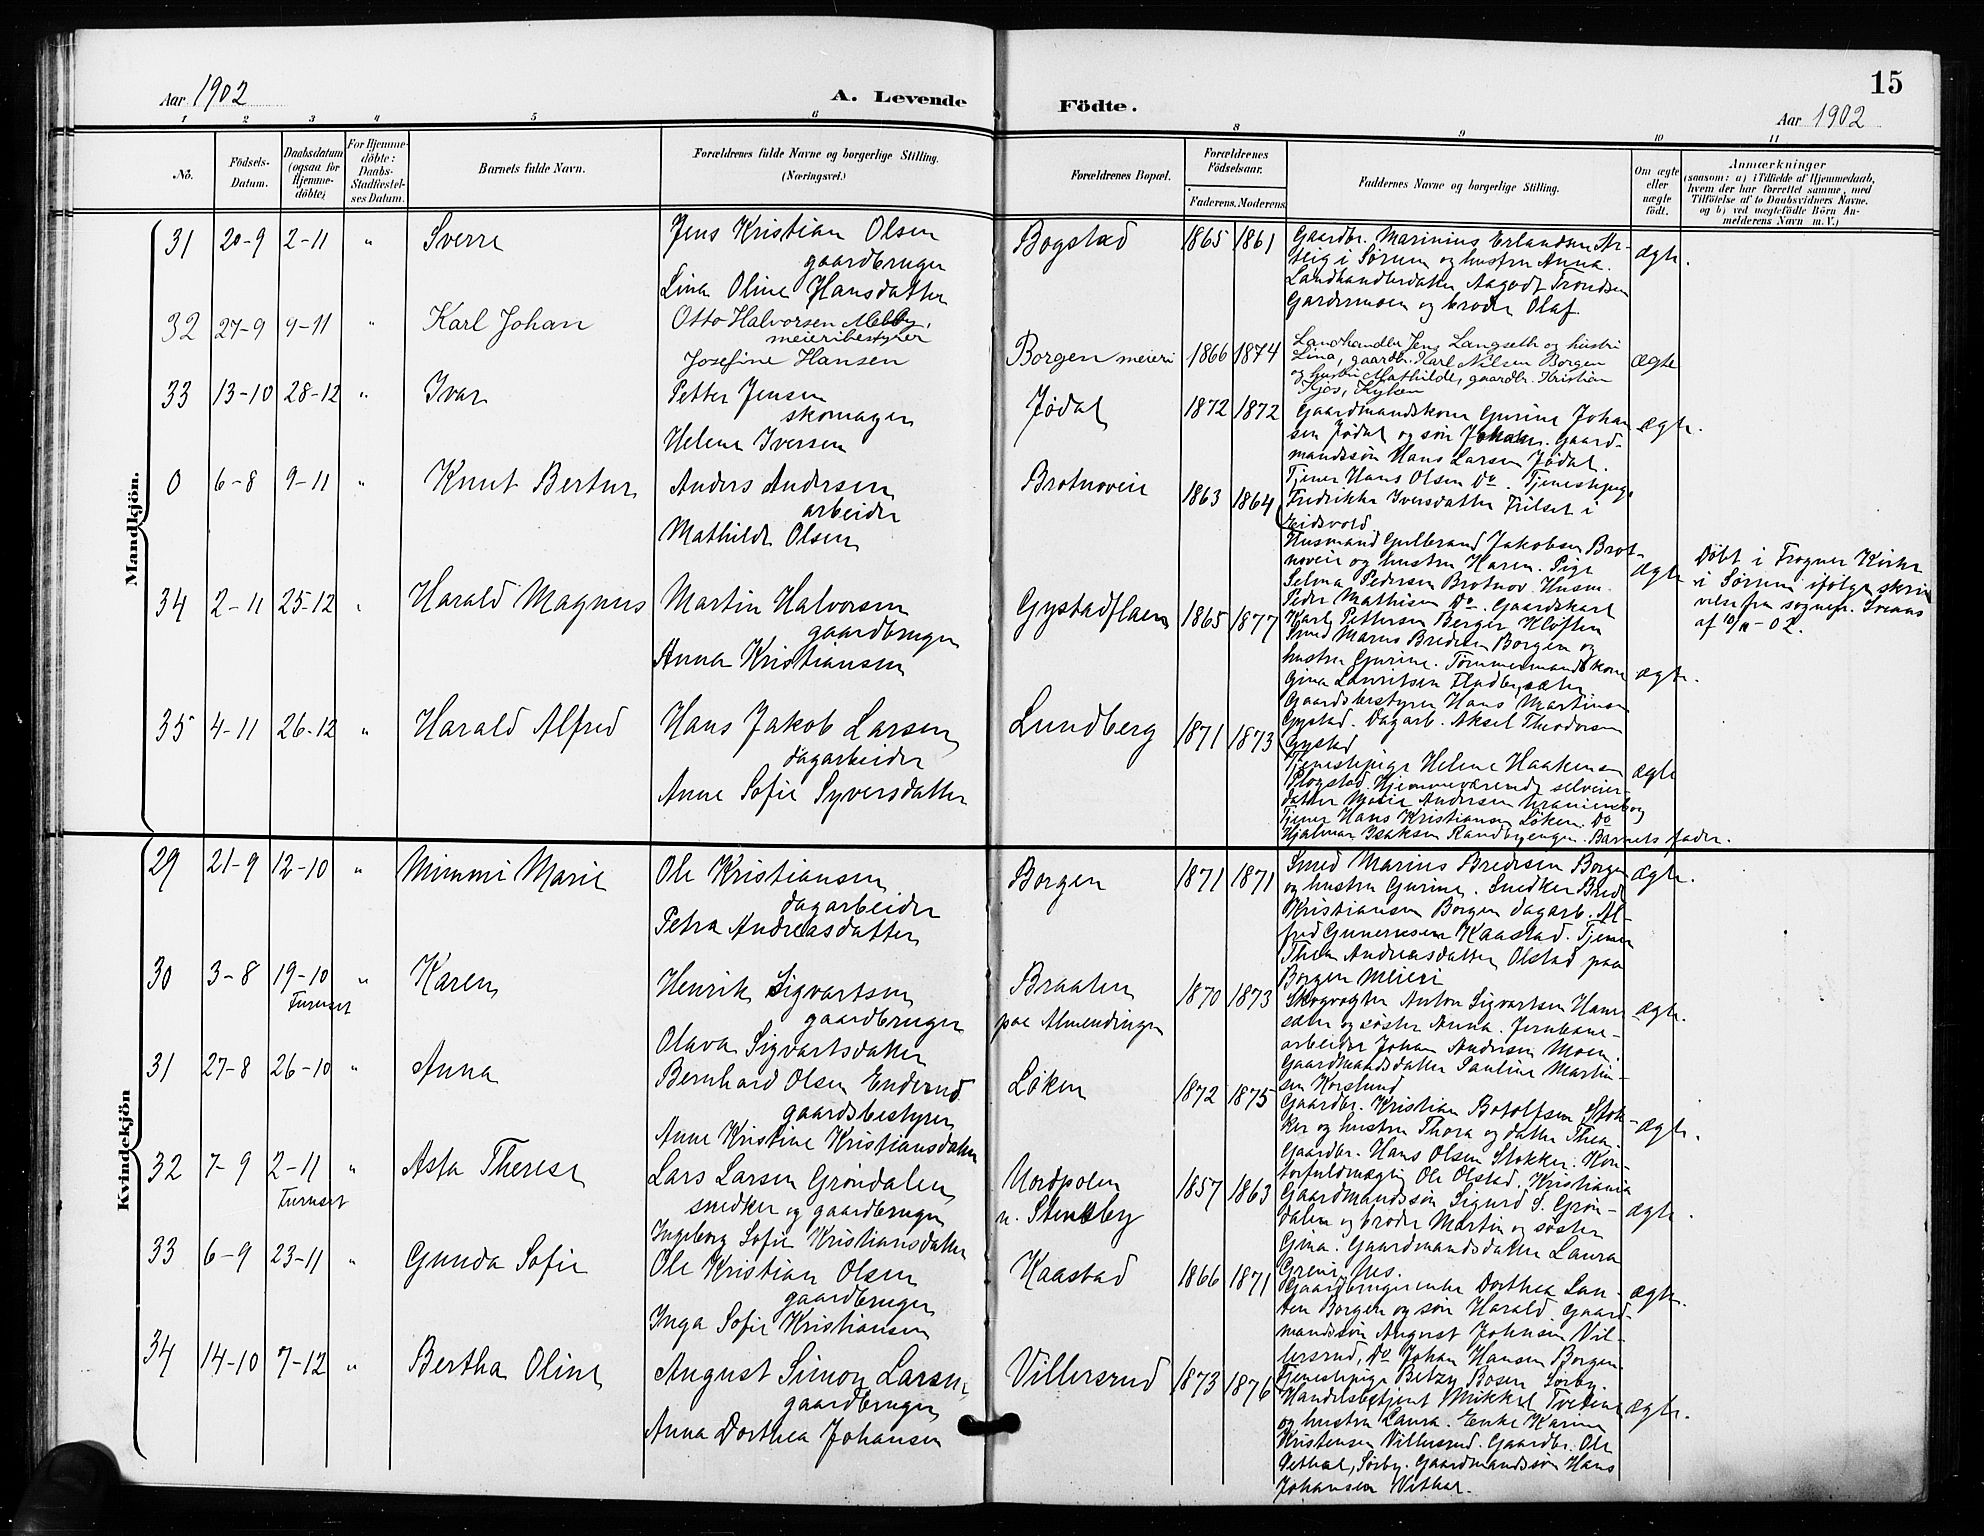 Aar 1902
A. Levende Födte.
15
Aar 1902
1 2 3 4 5 6 8 9 10 11
No.
Födsels-Datum.
Daabsdatum (ogsaa for Hjemme-döbte)
For Hjemme-döbte: Daabs-Stadfestel-ses Datum.
Barnets fulde Navn.
Forældrenes fulde Navne og borgerlige Stilling. (Næringsvei.)
Forældrenes Bopæl.
Forældrenes Födselsaar.
Faderens. Moderens.
Faddernes Navne og borgerlige Stilling.
Om ægte eller uægte födt.
Anmærkninger
(saasom: a) i Tilfælde af Hjemmedaab, hvem der har forrettet samme, med Tilföielse af to Daabsvidners Navne. og b) ved uegtefödte Börn An-melderens Navn m. V.)
Mandkjön.
31 20-9 2-11 " Sverre
Jens Kristian Olsen
gaardbruger
Lina Oline Hansdatter
Bogstad 1865 1861
Gaardbr. Marinius Erlandsen
i Sørum og hustru Anna.
Landhandlerdatter Aagodt Trondsen
Gardermoen og broder Olaf.
ægte.
32 27-9 9-11 " Karl Johan
Otto Halvorsen Melby,
meieribestyrer
Josefine Hansen
Borgen meieri 1866 1874
Landhandler Jens Langseth og hustru
Lina, gaardbr. Karl Nilsen Borgen
og hustru Mathilde, gaardbr. Kristian
ægte
33 13-10 28-12 " Ivar
Petter Jensen
skomager
Helene Iversen
Jødal 1872 1872
Gaardmandskone Gurine Johan
sen Jødal og søn Johan. Gaard-
mandssøn Hans Larsen Jødal.
Tjener Hans Olsen Do. Tjenestepige
Fredrikke Iversdatter i
Eidsvold.
ægte.
0 6-8 9-11 " Knut Bertur
Anders Andersen
arbeider
Mathilde Olsen
Brotnoveie 1863 1864
Husmand Gulbrand Jakobsen Brot-
noveie og hustru Karen. Pige
Selma Pedersen Brotnov. Husm.
Peder Mathisen Do. Gaardskarl
Karl Pettersen Berger Kløften
ægte
Døbt i Frogner Kirke
i Sørum ifølge skri
velse fra sognepr.
af 10/11-02.
34 2-11 25-12 " Harald Magnus
Martin Halvorsen
gaardbruger
Anna Kristiansen
Gystadflaen 1865 1877
Smed Marius Bredesen Borgen og
hustru Gurine. Tømmermandskone
Gina Lauritsen
Gaardsbestyrer Hans Martinsen
Gystad. Dagarb. Aksel Theodorsen
Gystad
ægte.
35 4-11 26-12 " Harald Alfred
Hans Jakob Larsen
dagarbeider
Anne Sofie Syversdatter
Lundberg 1871 1873
Tjenestepige Helene Haakensen
Plogstad. Hjemmeværende selveier-
datter Marie Andersen Uranienborg
Tjener Hans Kristiansen Løken. Do
Hjalmar Isaksen Randbyengen. Barnets fader.
ægte
Kvindekjön
29 21-9 12-10 " Mimmi Marie
Ole Kristiansen
dagarbeider
Petra Andreasdatter
Borgen 1871 1871
Smed Marius Bredesen Borgen
og hustru Gurine. Snedker Bred
Kristiansen Borgen dagarb. Al-
fred Gunerusen Kaastad. Tjener
Thea Andreasdatter Olstad paa
Borgen Meieri
ægte.
30 3-8 19-10 " Karen
Furuset
Henrik Sigvartsen
gaardbruger
Olava Sigvartsdatter
Braaten
paa Almendingen
1870 1873
Skogvogter Anton Sigvartsen Hans
sæter og søster Anna. Jernbane-
arbeider Johan Andersen Moen.
Gaardmandsdatter Pauline Martin-
sen Korslund
ægte.
31 27-8 26-10 " Anna
Bernhard Olsen Enderud
gaardsbestyrer
Anne Kristine Kristiansdatter
Løken 1872 1875
Gaardbr. Kristian Botolfsen Stok-
ker og hustru Thora og datter Thea.
Gaardbr. Hans Olsen Stokker. Kon-
torfuldmægtig Ole Olstad. Kristiania
ægte.
32 7-9 2-11 " Asta Therese
Furuset
Lars Larsen Grøndalen
snedker og gaardbruger
Ingeborg Sofie Kristiansdatter
Nordpolen
u. Stensby
1857 1863
Gaardmandssøn Sigurd S. Grøn-
dalen og broder Martin og søster
Gina. Gaardmandsdatter Laura
Greni, Nes.
ægte.
33 6-9 23-11 " Gunda Sofie
Ole Kristian Olsen
gaardbruger
Inga Sofie Kristiansen
Kaastad 1866 1871
Gaardbrugerenke Dorthea Lar-
sen Borgen og søn Harald. Gaard-
mandssøn August Johnsen Vil-
lersrud, Do Johan Hansen Borgen.
Tjenestepige Betzy Bosen Sørby.
ægte.
34 14-10 7-12 " Bertha Oline
August Simon Larsen
gaardbruger
Anna Dorthea Johansen
Villersrud 1873 1876
Handelsbetjent Mikkel Tveine
og hustru Laura. Enke Karine
Kristensen Villersrud. Gaardbr. Ole
Sørby. Gaardmandssøn Hans
Johansen
ægte.